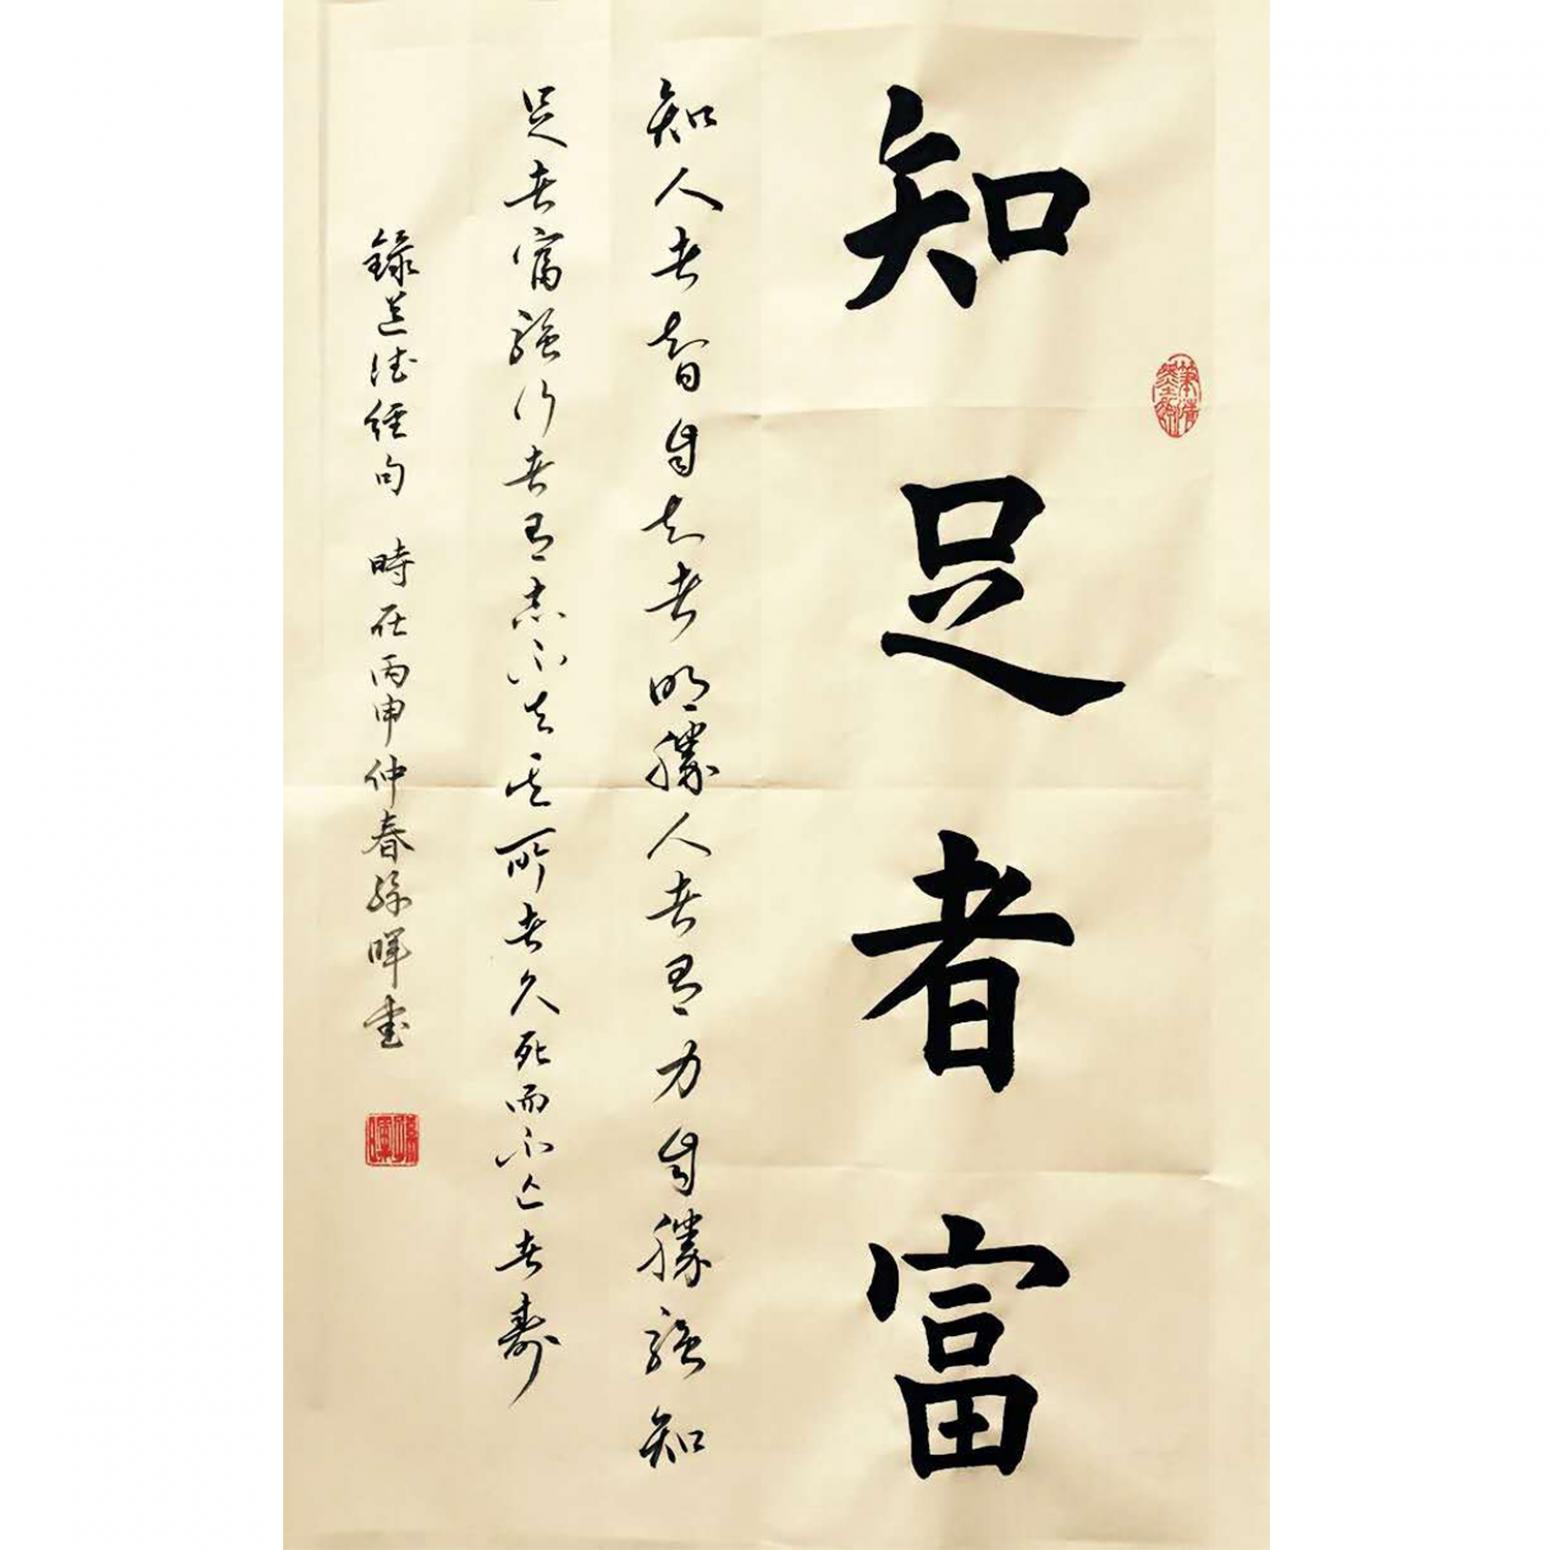 知足者富
知人者智自知者明勝人者有力自勝強知
足者富強行者有志不失其所者久死而不亡者壽
錄道德經句 時在丙申仲春孫暉書
孫暉